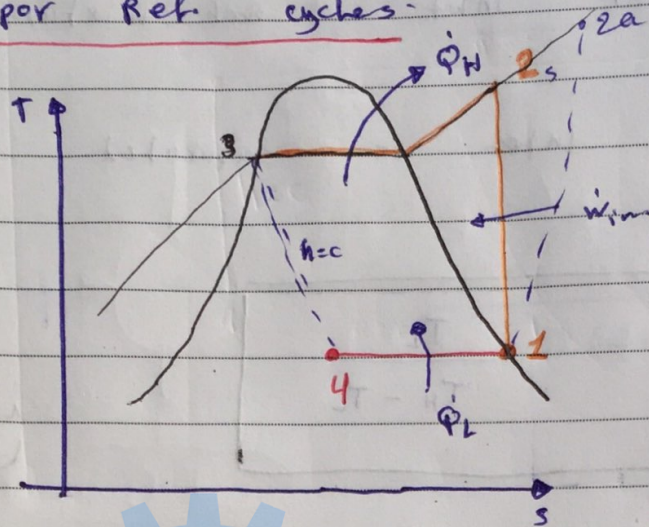 por Ref. cycles.
2a
Q̇H
2s
T
3
Ẇin
h=c
1
4
Q̇L
s